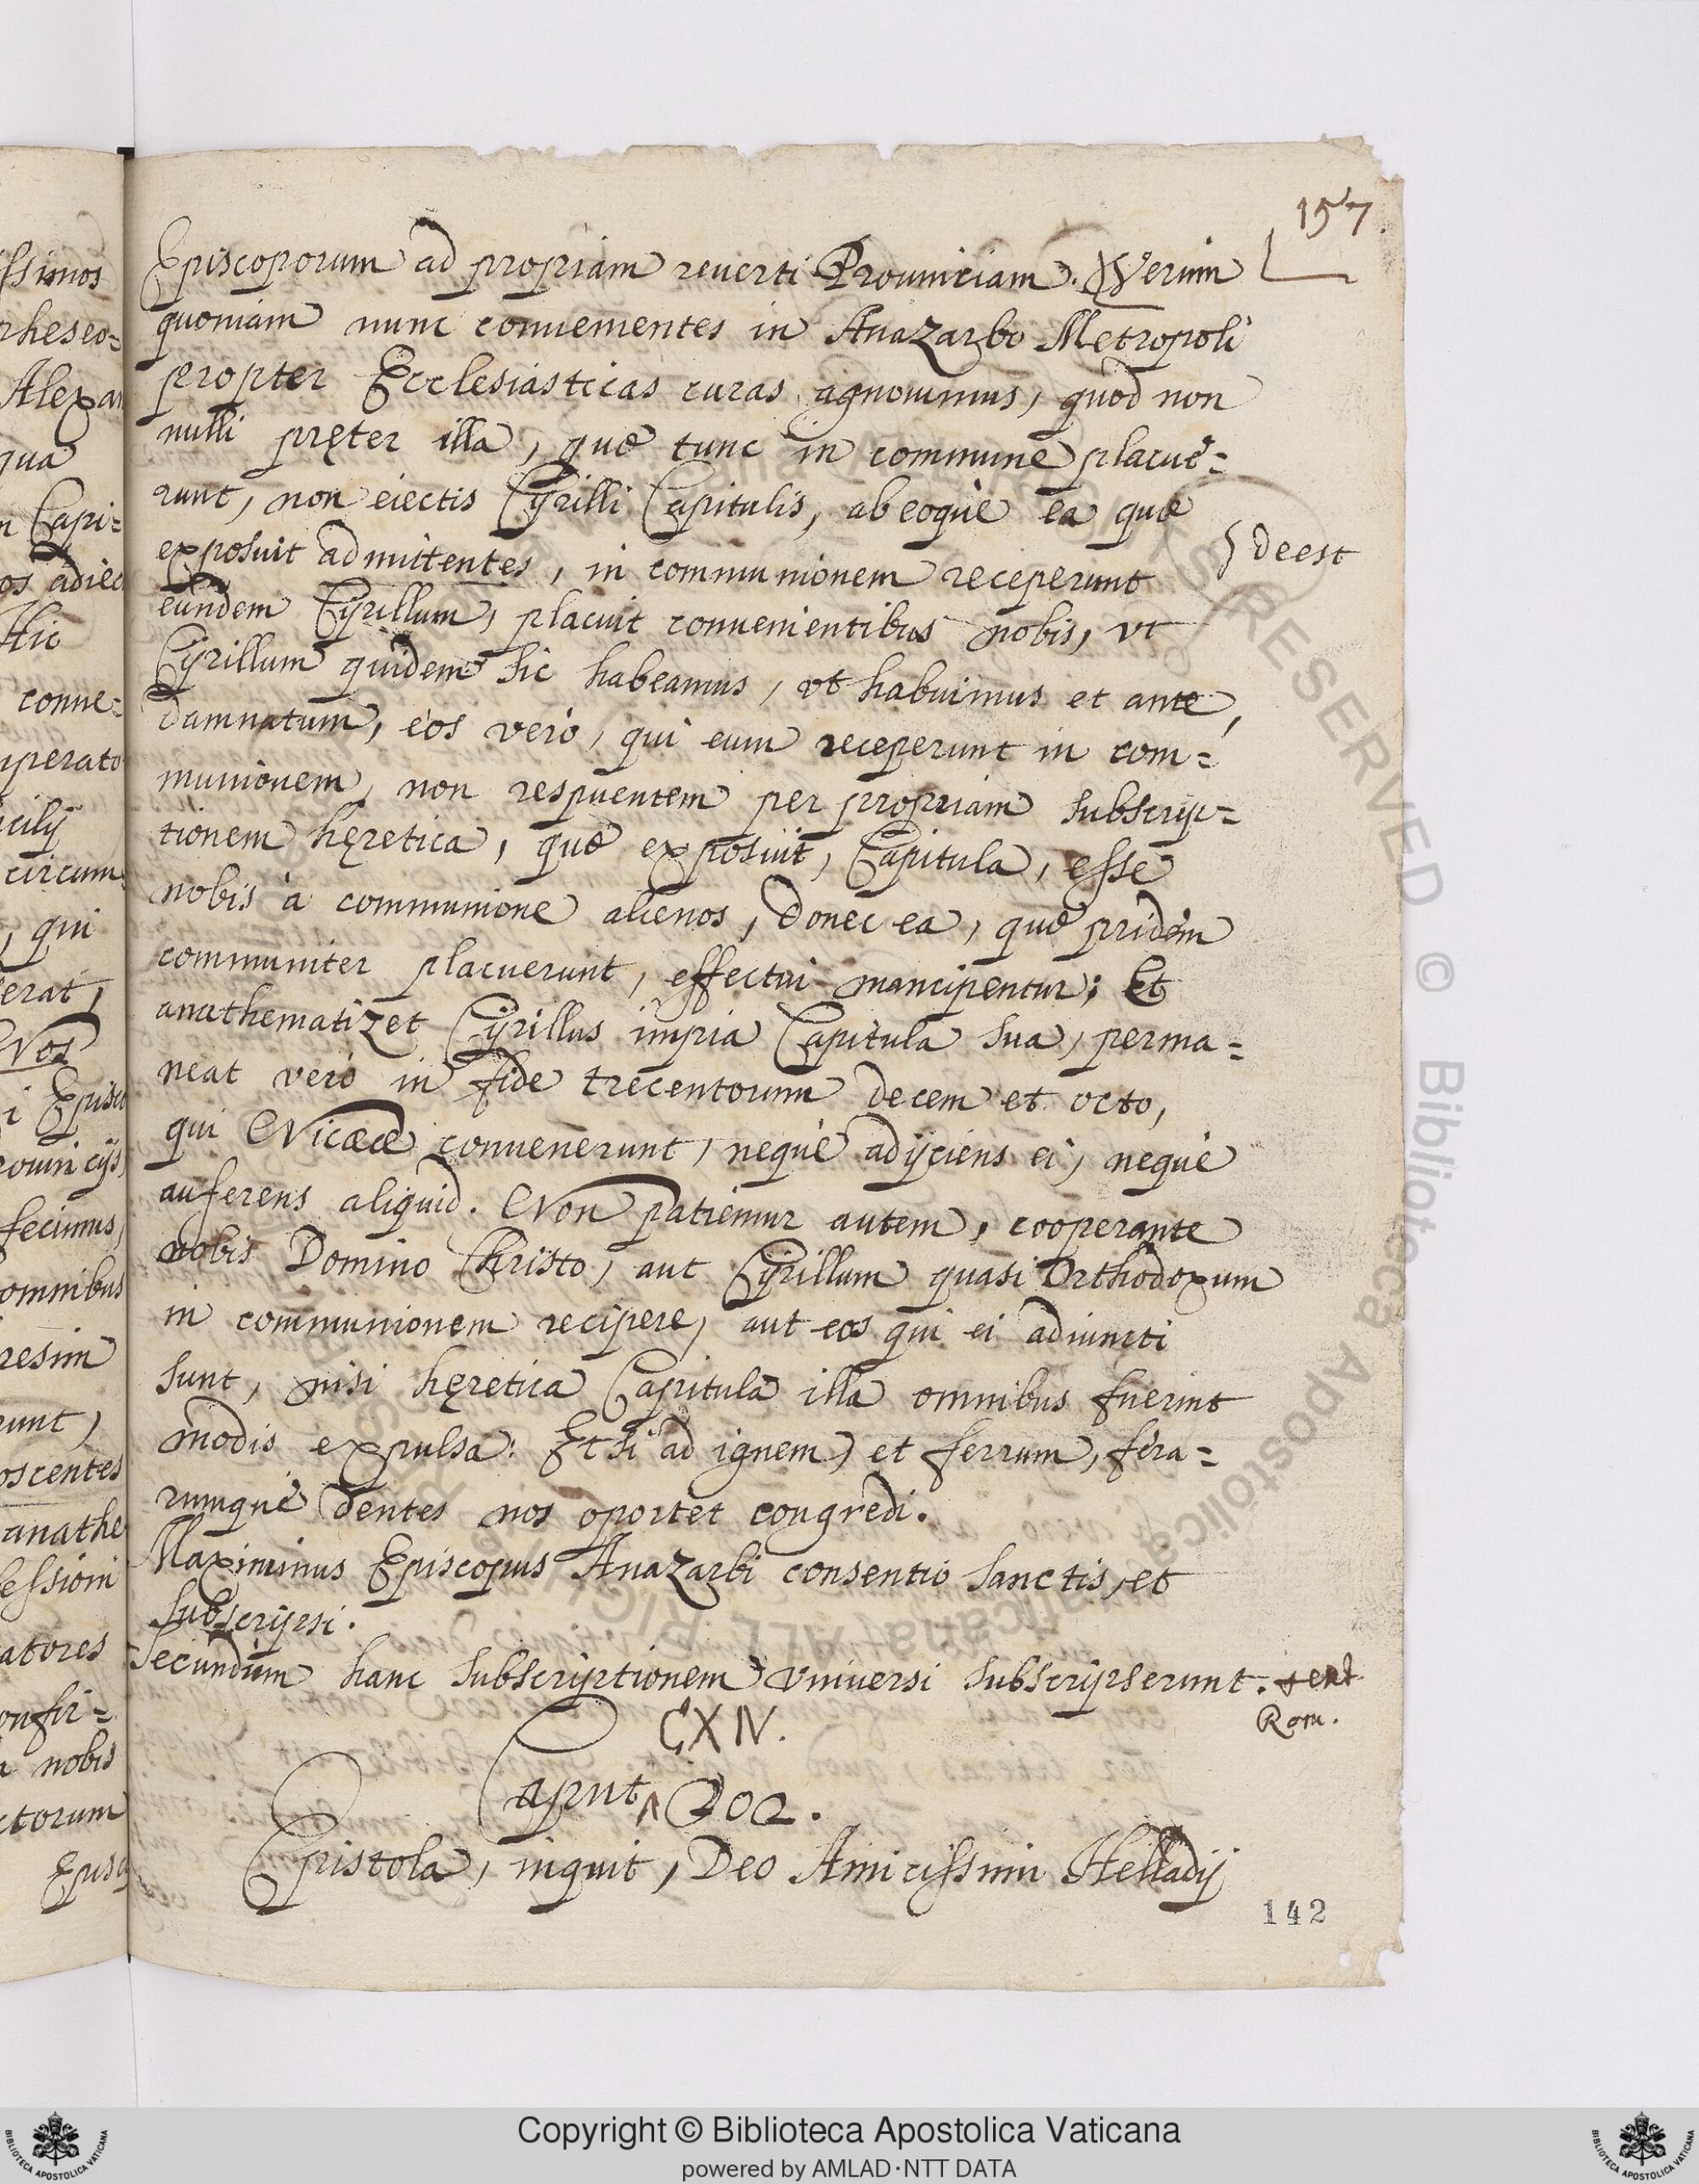 157
Episcoporum ad propriam reuerti Prouinciam. Verum
quoniam nunc conuenientes in Anazarbo Metropoli
propter Ecclesiasticas curas agnouimus, quod non
nulli pręter illa, quæ tunc in commune placue=
runt, non eiectis Cyrilli Capitulis, abeoquè ea quæ
exposuit admittentes, in communionem receperunt
} deest
eundem Cyrillum, placuit conuenientibus nobis, vt
Cyrillum quidem sic habeamus, vt habuimus et ante,
damnatum, eos verò, qui eum receperunt in com=
munionem, non respuentem per propriam subscrip=
tionem hęretica, quæ exposuit, Capitula, esse
nobis à communione alienos, donec ea, quæ pridem
communiter placuerunt, effectui mancipentur; Et
anathematizet Cyrillus impia Capitula sua, perma=
neat verò in fide trecentorum decem et octo,
qui Nicææ conuenerunt, nequè adijciens ei, nequè
auferens aliquid. Non patiemur autem, cooperante
nobis Domino Christo, aut Cyrillum quasi Orthodoxum
in communionem recipere, aut eos qui ei adiuncti
sunt, nisi hęretica Capitula illa omnibus fuerint
modis expulsa: Et si ad ignem, et ferrum, fera=
rumquè dentes nos oportet congredi.
Maximinus Episcopus Anazarbi consentio sanctis, et
subscripsi.
Secundum hanc subscriptionem vniuersi subscripserunt.
Rom.
CXIV.
Caput 202.
Epistola, inquit, Deo Amicissimi Helladij
142
ſsimos
rheseo=
Alexan
qua
m Capi=
os adiec
Hic
conue=
mperato
icilij
circum
, qui
erat,
Nos
i Episco
rouincijs
fecimus,
omnibus
resim
runt,
oscentes
anathe
essioni
atores
onfir=
a nobis
ctorum
Episc
ALL RIGHTS RESERVED © Biblioteca Apostolica Vaticana
Copyright © Biblioteca Apostolica Vaticana
powered by AMLAD·NTT DATA
BIBLIOTECA APOSTOLICA VATICANA
BIBLIOTECA APOSTOLICA VATICANA